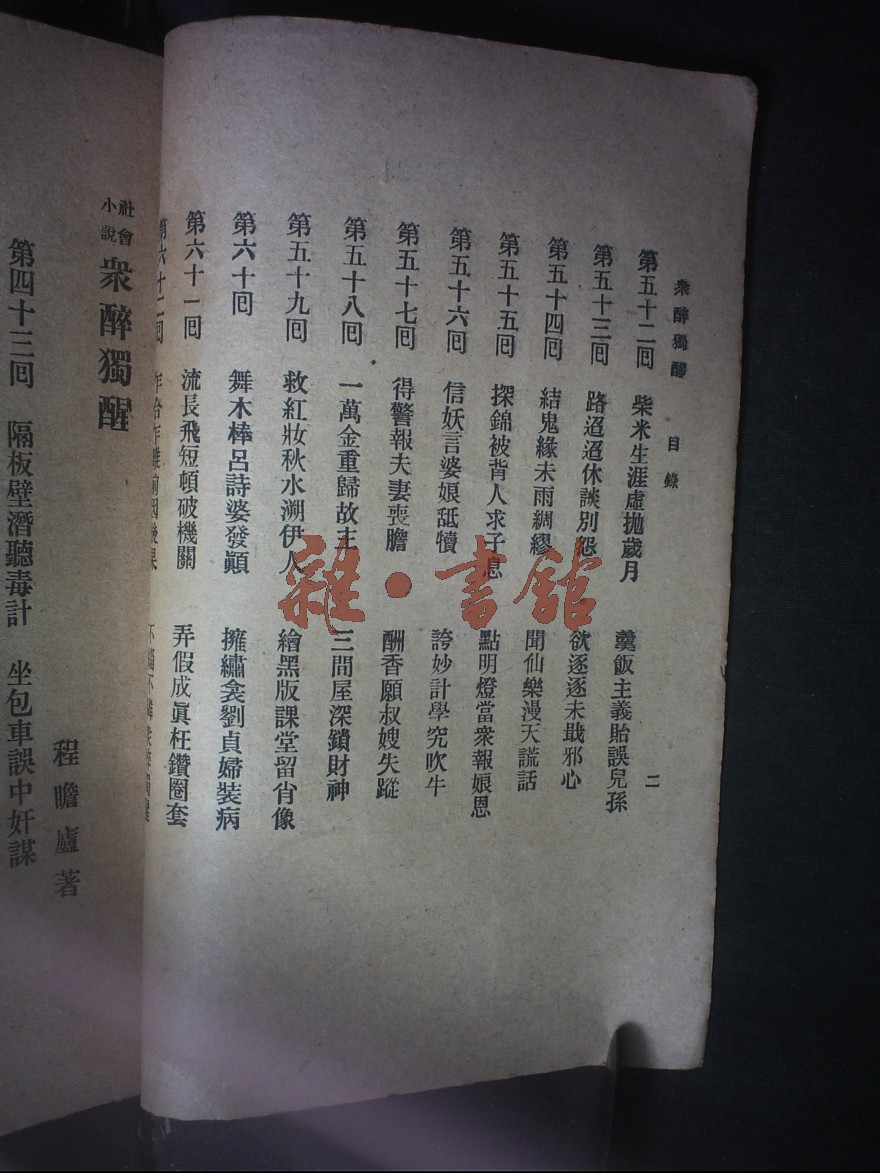 衆醉獨醒　目錄　二
第五十二囘　柴米生涯虛拋歲月　羹飯主義貽誤兒孫
第五十三囘　路迢迢休談別怨　欲逐逐未戢邪心
第五十四囘　結鬼緣未雨綢繆　聞仙樂漫天謊話
第五十五囘　探錦被背人求子息　點明燈當衆報娘恩
第五十六囘　信妖言婆娘舐犢　誇妙計學究吹牛
第五十七囘　得警報夫妻喪膽　酬香願叔嫂失蹤
第五十八囘　一萬金重歸故主　三間屋深鎖財神
第五十九囘　救紅妝秋水溯伊人　繪黑版課堂留肖像
第六十囘　舞木棒呂詩婆發顚　擁繡衾劉貞婦裝病
第六十一囘　流長飛短頓破機關　弄假成眞枉鑽圈套
第六十二囘
社會小說　衆醉獨醒
程瞻廬著
第四十三囘　隔板壁潛聽毒計　坐包車誤中奸謀
雜·書館